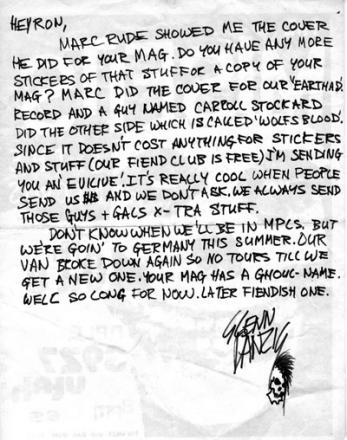 HEY RON,
MARC RUDE SHOWED ME THE COVER
HE DID FOR YOUR MAG. DO YOU HAVE ANY MORE
STICKERS OF THAT STUFF OR A COPY OF YOUR
MAG? MARC DID THE COVER FOR OUR 'EARTH AD'
RECORD AND A GUY NAMED CARROLL STOCKARD
DID THE OTHER SIDE WHICH IS CALLED 'WOLFS BLOOD'.
SINCE IT DOESN'T COST ANYTHING FOR STICKERS
AND STUFF (OUR FIEND CLUB IS FREE) I'M SENDING
YOU AN 'EVILIVE'. IT'S REALLY COOL WHEN PEOPLE
SEND US $$ AND WE DON'T ASK. WE ALWAYS SEND
THOSE GUYS + GALS X-TRA STUFF.
DON'T KNOW WHEN WE'LL BE IN MPLS. BUT
WE'RE GOIN' TO GERMANY THIS SUMMER. OUR
VAN BROKE DOWN AGAIN SO NO TOURS TILL WE
GET A NEW ONE. YOUR MAG HAS A GHOUL-NAME.
WELL SO LONG FOR NOW. LATER FIENDISH ONE.
GLENN
DANZIG